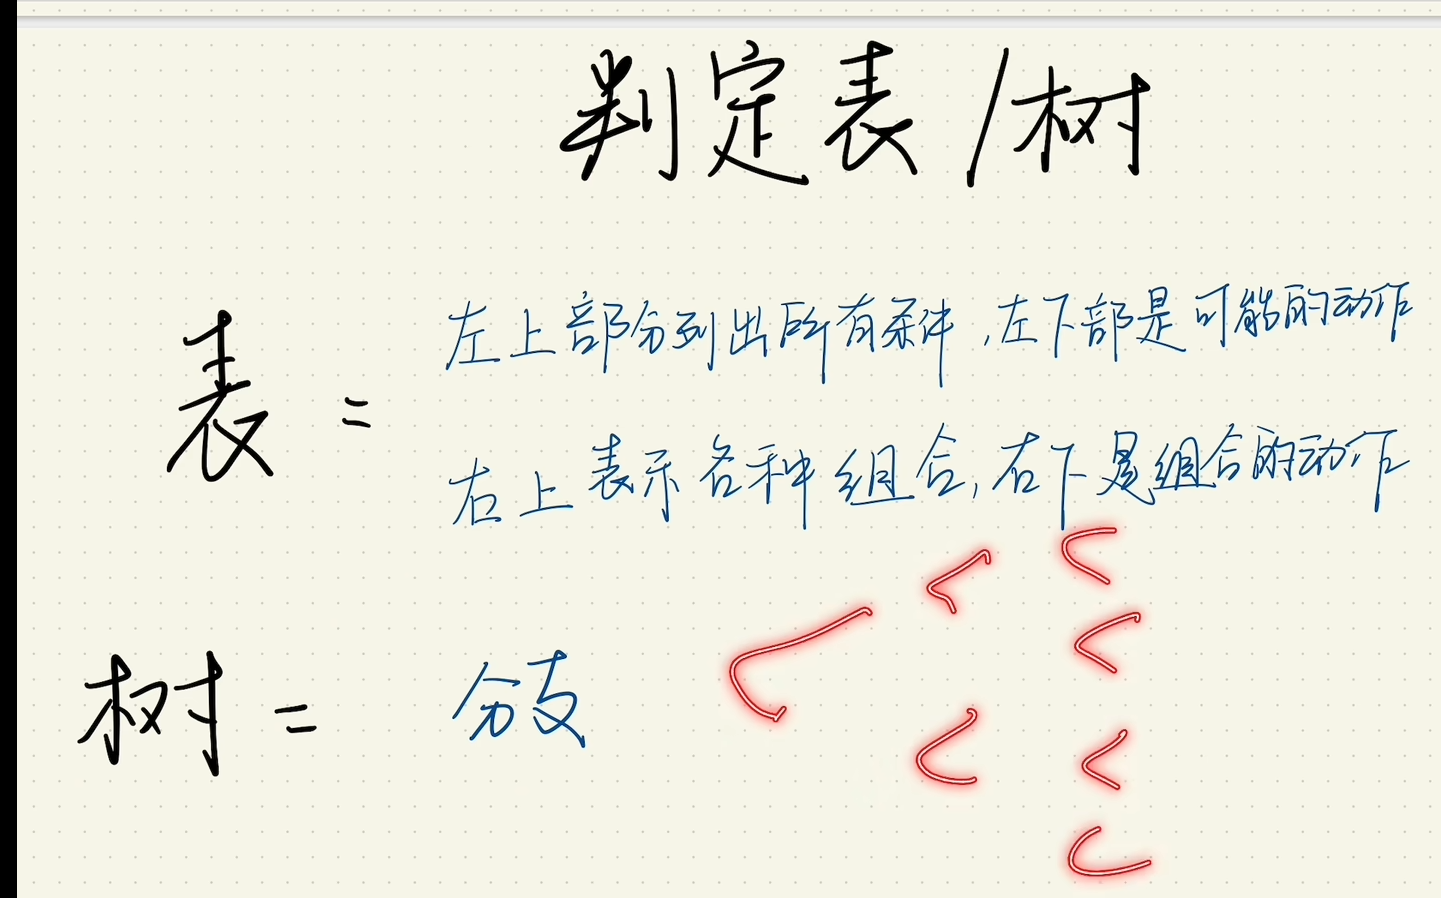 判定表/树
左上部分列出所有条件,左下部是可能的动作
表=
右上表示各种组合,右下是组合的动作
树= 分支